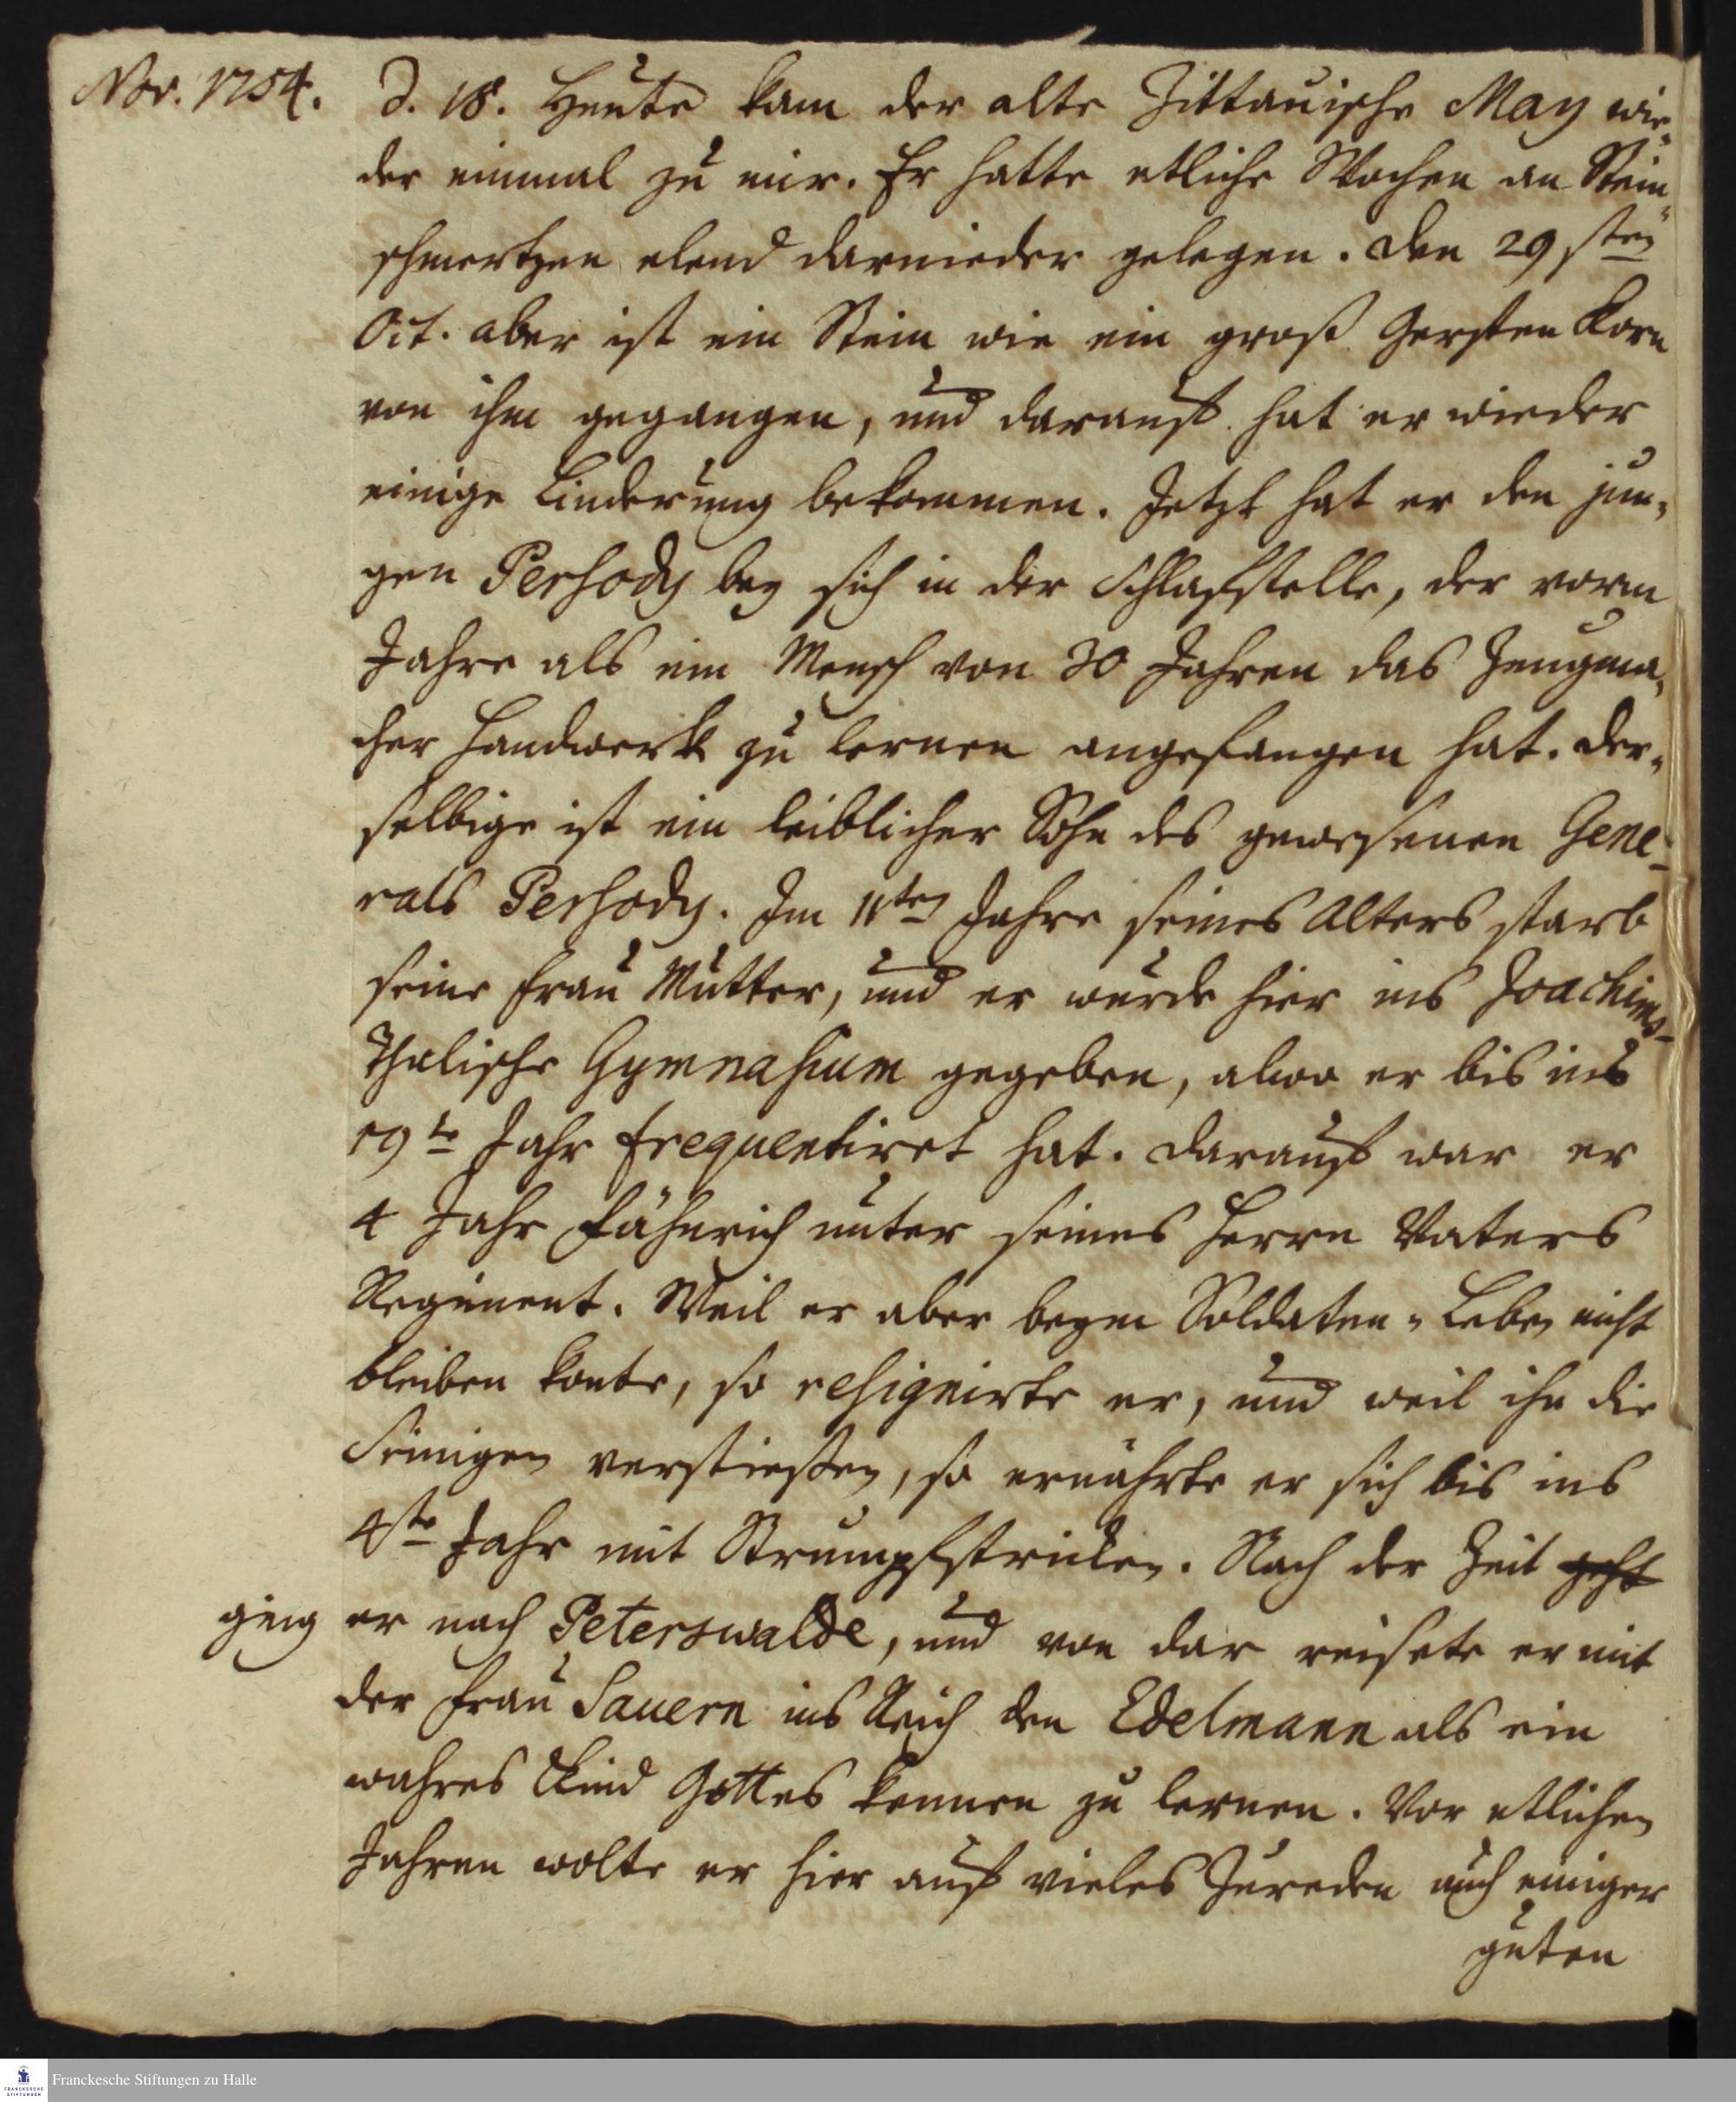 Nov. 1754.
d. 18. Heute kam der alte Zittauische May wie-
der einmal zu mir. Er hatte etliche Wochen an Stein-
schmertzen elend darnieder gelegen. Den 29sten
Oct. aber ist ein Stein wie ein groß Gersten Korn
von ihm gegangen, und darauf hat er wieder
einige Linderung bekommen. Jetzt hat er den jun-
gen Persody bey sich in der Schlafstelle, der vorm
Jahre als ein Mensch von 30 Jahren das Zeugma-
cher Handwerk zu lernen angefangen hat. Der-
selbige ist ein leiblicher Sohn des gewesenen Gene-
rals Persody. Im 11ten Jahre seines Alters starb
seine Frau Mutter, und er wurde hier ins Joachims-
Thalische Gymnasium gegeben, alwo er bis ins
19te Jahr frequentiret hat. Darauf war er
4 Jahr Fähnrich unter seines Herrn Vaters
Regiment. Weil er aber beym Soldaten-Leben nicht
bleiben konte, so resignirte er, und weil ihn die
Seinigen verstießen, so ernährte er sich bis ins
4te Jahr mit Strumpfstricken. Nach der Zeit geht
ging er nach Peterswalde, und von dar reisete er mit
der Frau Sauern ins Reich den Edelmann als ein
wahres Kind Gottes kennen zu lernen. Vor etlichen
Jahren wolte er hier auf vieles Zureden auch einiger
guten
Franckesche Stiftungen zu Halle
FRANCKESCHE
STIFTUNGEN